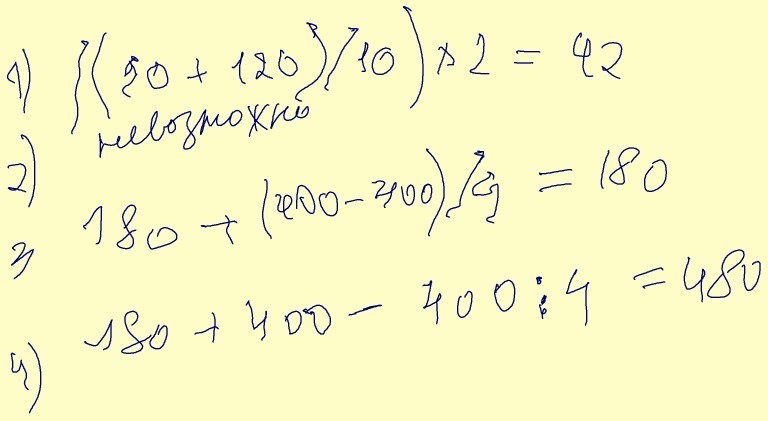 1) ((90 + 120)/10) × 2 = 42
2) невозможно
3 180 + (400 - 400)/4 = 180
4) 180 + 400 - 400 : 4 = 480